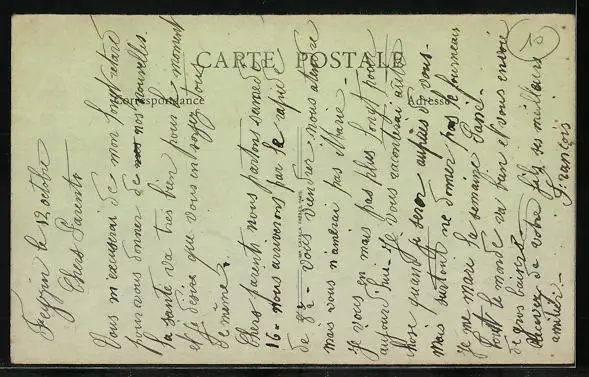 CARTE POSTALE
Correspondance
Adresse
10
Feyzin le 12 octobre
Chers Parents
Vous m'excuserai de mon long retard
pour vous donner de nos nouvelles.
la santé va tres bien pour le moment
et je désire que vous en soyez tous
de même.
Chers parents nous partons samedi
16 - nous arriverons par le rapide
de 8h - vous viendrer nous atendre
mais vous n'amerai pas Marie -
Je vous en mais pas plus long pour
aujourd'hui - Je vous raconterai autre
chose quand je serer auprès de vous -
Mais surtout ne donner pas le fourneau
le monde va bien et vous envoie
de gros baisers
Recever de votre fils ses meilleurs
amitier. -
François